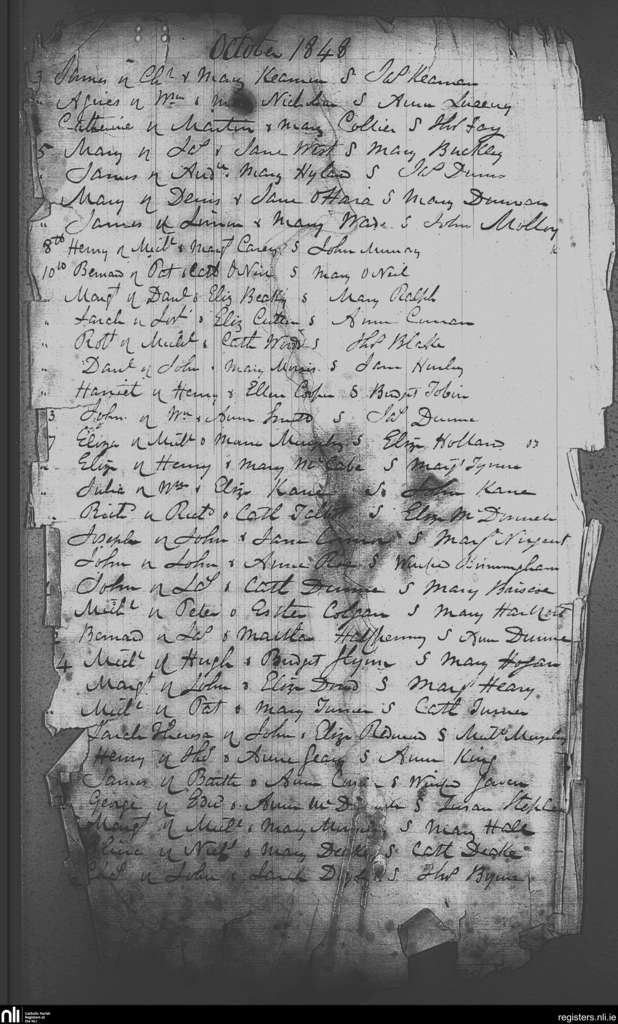 October 1848
3 James of Chr & Mary Keaman S Jas Keaman
" Agnes of Wm & Nicholson S Anne
Catherine of Martin & Mary Collier S Thos Foy
5 Mary of Jas & Jane West S Mary Buckley
James of Andw Mary Hyland S Jas Dunne
Mary of Denis & Jane O'Hara S Mary Duncan
" James of Simon & Mary Wade S John Molloy
8th Henry of Michl & Margt Carey S John Murray
10th Bernard of Pat & Cath O Niel S Mary O Neil
" Margt of Danl & Eliz Beakey S Mary Ralph
" Sarah of Josh & Eliz Cullen S Anne Curran
" Robt of Michl & Cath Wood S Thos Blake
" Danl of John & Mary Morris S Jane Hurley
" Harriet of Henry & Ellen Cooper S Bridget Tobin
3 John of Wm & Anne Smith S Jas Dunne
7 Eliza of Michl & Maria Murphy S Eliza Holland
" Eliza of Henry & Mary McCabe S Margt Tynne
" Julia of Wm & Eliza Kane Sr John Kane
" Richd of Richd & Cath S Eliza McDonnell
Joseph of John & Jane Connor S Margt Nugent
John of John & Anne Roe S Winifd Birmingham
John of Jas & Cath Dunne S Mary Briscoe
Michl of Peter & Esther Colgan S Mary Harkort
Bernard of Jas & Martha Halfpenny S Ann Dunne
4 Michl of Hugh & Bridget Flynn S Mary Hogan
Margt of John & Eliza Dowd S Margt Heary
Michl of Pat & Mary Turner S Cath Turner
Sarah Theresa of John & Eliza Redmond S Michl Murphy
Henry of Thos & Anne Geary S Anne King
James of Barth & Anne S Winifd
George of Edwd & Anne S Susan
Margt of Michl & Mary Murphy S Mary Hall
of Nichs & Mary S Cath Deake
of John & Sarah S Thos Byrne
nli
Catholic Parish
Registers at
the NLI
registers.nli.ie